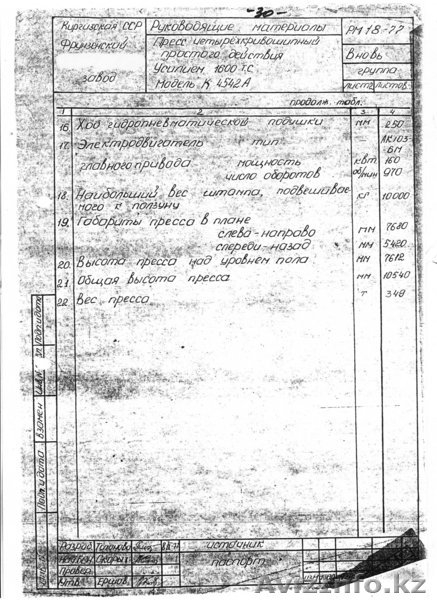 -30-
Киргизская ССР
Фрунзенский
завод
Руководящие материалы
Пресс четырехкривошипный
простого действия
Усилием 1600 т.с.
Модель К 4542А
РМ 18-77
Вновь
группа
лист листов
продолж. табл.
1 2 3 4
16. Ход гидропневматической подушки мм 250
17. Электродвигатель тип
главного привода мощность квт 160
число оборотов об/мин 970
18. Наибольший вес штампа, подвешивае
мого к ползуну кг 10000
19. Габариты пресса в плане
слева-направо мм 7680
спереди-назад мм 5420
20. Высота пресса над уровнем пола мм 7612
21. Общая высота пресса мм 10540
22. Вес пресса т 349
Подп и дата
Взамен
Подп и дата
Разраб.
Провер.
Утв. Ершов
источник
паспорт
AvizInfo.kz